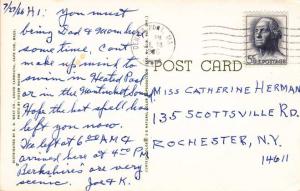 7/27/66 Hi: You must
bring Dad & Mom here
some time. Can't
make up mind to
swim in Heated Pool
or in the Nantucket Sound
Hope the hot spell has
left you now.
We left at 6:30 AM &
arrived here at 4:00 PM
Berkshire's are very
scenic. Joe & K.
POST CARD
5¢ U.S. POSTAGE
MISS CATHERINE HERMAN
135 SCOTTSVILLE RD.
ROCHESTER, N.Y.
14611